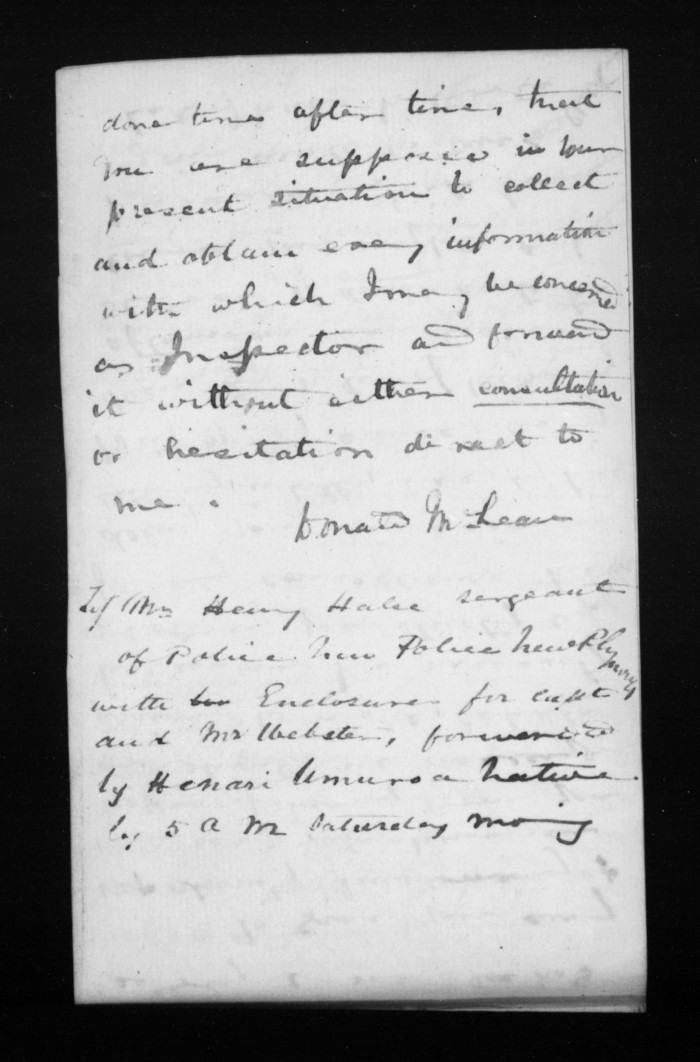 done time after time, that
you are supposed in your
present situation to collect
and obtain every information
with which I may be concerned
as Inspector and forward
it without either consultation
or hesitation direct to
me.
Donald McLean
Mr Henry Halse sergeant
of Police New Police New Plymouth
with Enclosures for Capt
and Mr Webster, forwarded
by Henari Umuroa native
by 5 A M Saturday morning